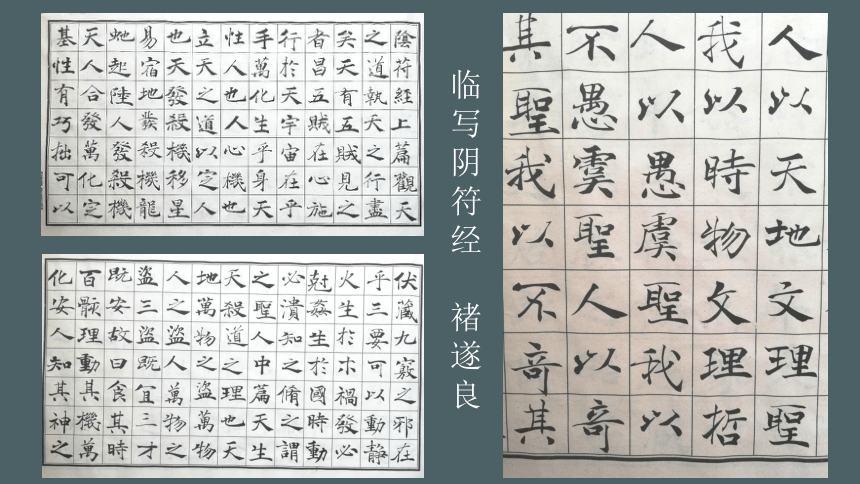 陰符經上篇觀天
之道執天之行盡
矣天有五賊見之
者昌五賊在心施
行於天宇宙在乎
手萬化生乎身天
性人也人心機也
立天之道以定人
也天發殺機移星
易宿地發殺機龍
虵起陸人發殺機
天人合發萬化定
基性有巧拙可以
伏藏九竅之邪在
乎三要可以動靜
火生於木禍發必
尅姦生於國時動
必潰知之脩之謂
之聖人中篇天生
天殺道之理也天
地萬物之盜萬物
人之盜人萬物之
盜三盜既宜三才
既安故曰食其時
百骸理動其機萬
化安人知其神之
临写阴符经 褚遂良
人以天地文理聖
我以時物文理哲
人以愚虞聖我以
不愚虞聖人以奇
其聖我以不奇其